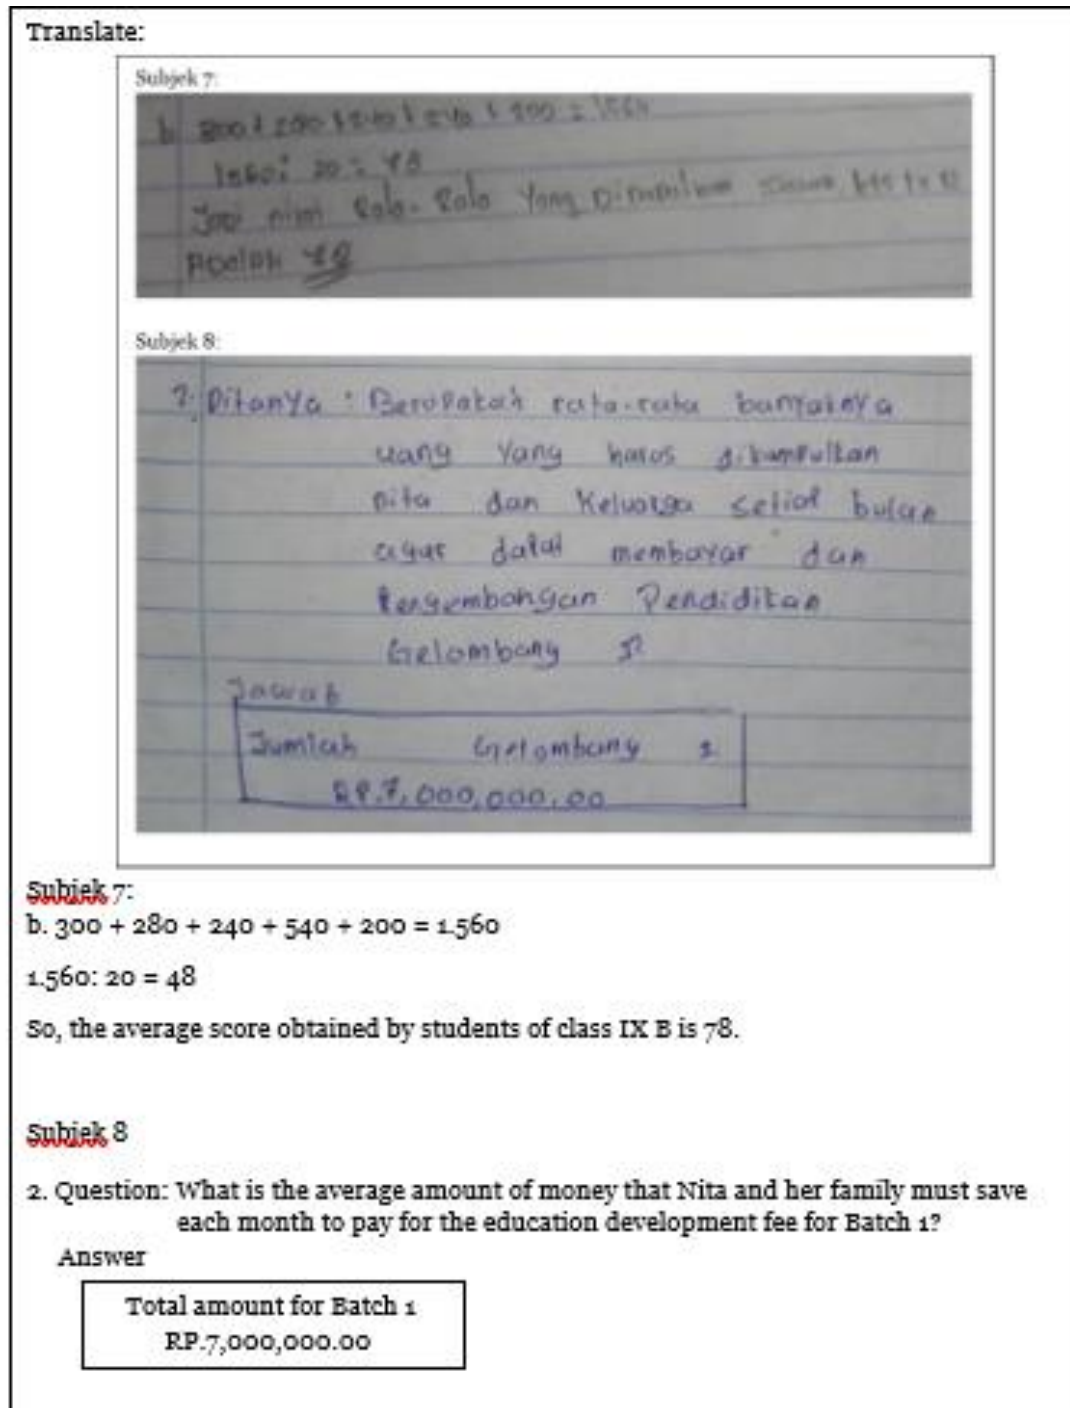 Translate:
Subjek 7:
b. 300 + 280 + 240 + 540 + 200 = 1560
1560: 20 = 78
Jadi nilai Rata-Rata Yang
Adalah 78
Subjek 8:
2. Ditanya : Berapakah rata-rata banyaknya
uang Yang harus dikumpulkan
nita dan Keluarga setiap bulan
agar dapat membayar dan
Pengembangan Pendidikan
Gelombang
Jawab
Jumlah Gelombang 1
RP.7,000,000.00
Subjek 7:
b. 300 + 280 + 240 + 540 + 200 = 1.560
1.560: 20 = 48
So, the average score obtained by students of class IX B is 78.
Subjek 8
2. Question: What is the average amount of money that Nita and her family must save
each month to pay for the education development fee for Batch 1?
Answer
Total amount for Batch 1
RP.7,000,000.00